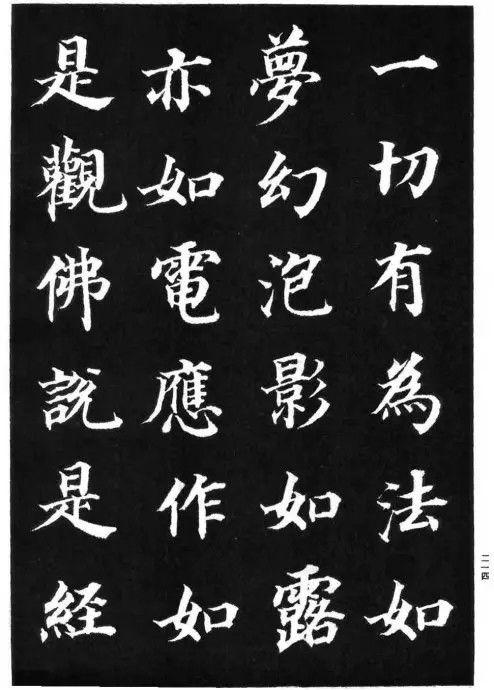 一切有為法如
夢幻泡影如露
亦如電應作如
是觀佛說是経
二一四